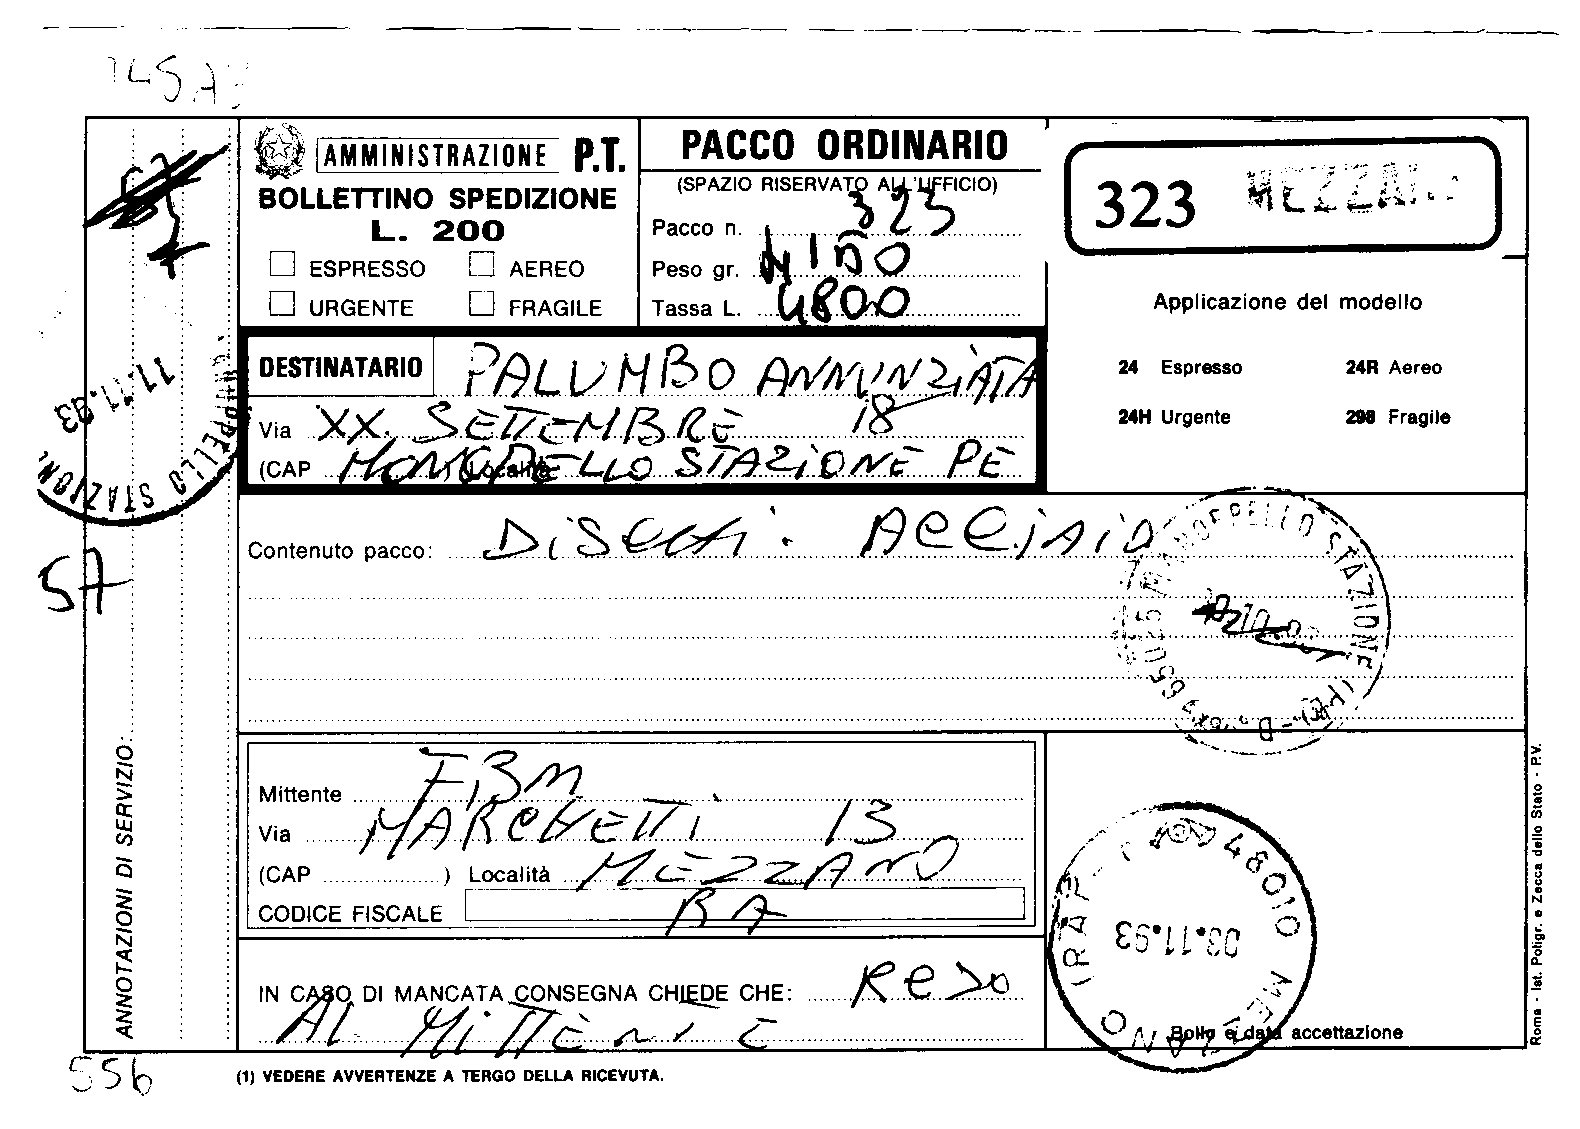 AMMINISTRAZIONE P.T.
BOLLETTINO SPEDIZIONE
L. 200
ESPRESSO AEREO
URGENTE FRAGILE
PACCO ORDINARIO
(SPAZIO RISERVATO ALL'UFFICIO)
Pacco n. 323
Peso gr.
Tassa L. 4800
323 MEZZANO
Applicazione del modello
24 Espresso 24R Aereo
24H Urgente 298 Fragile
DESTINATARIO PALUMBO ANNUNZIATA
Via XX. SETTEMBRE 18
(CAP ) Località MONOPPELLO STAZIONE PE
11.11.93
STAZIONE
57
Contenuto pacco: DISCHI. ACCIAIO
65025 MANOPPELLO STAZIONE (PE)
Mittente FBM
Via MARCHETTI 13
(CAP ) Località MEZZANO
CODICE FISCALE RA
IN CASO DI MANCATA CONSEGNA CHIEDE CHE: RESO
AL MITTENTE
48010 MEZZANO (RA)
03.11.93
Bollo e data accettazione
ANNOTAZIONI DI SERVIZIO:
Roma - Ist. Poligr. e Zecca dello Stato - P.V.
556
(1) VEDERE AVVERTENZE A TERGO DELLA RICEVUTA.